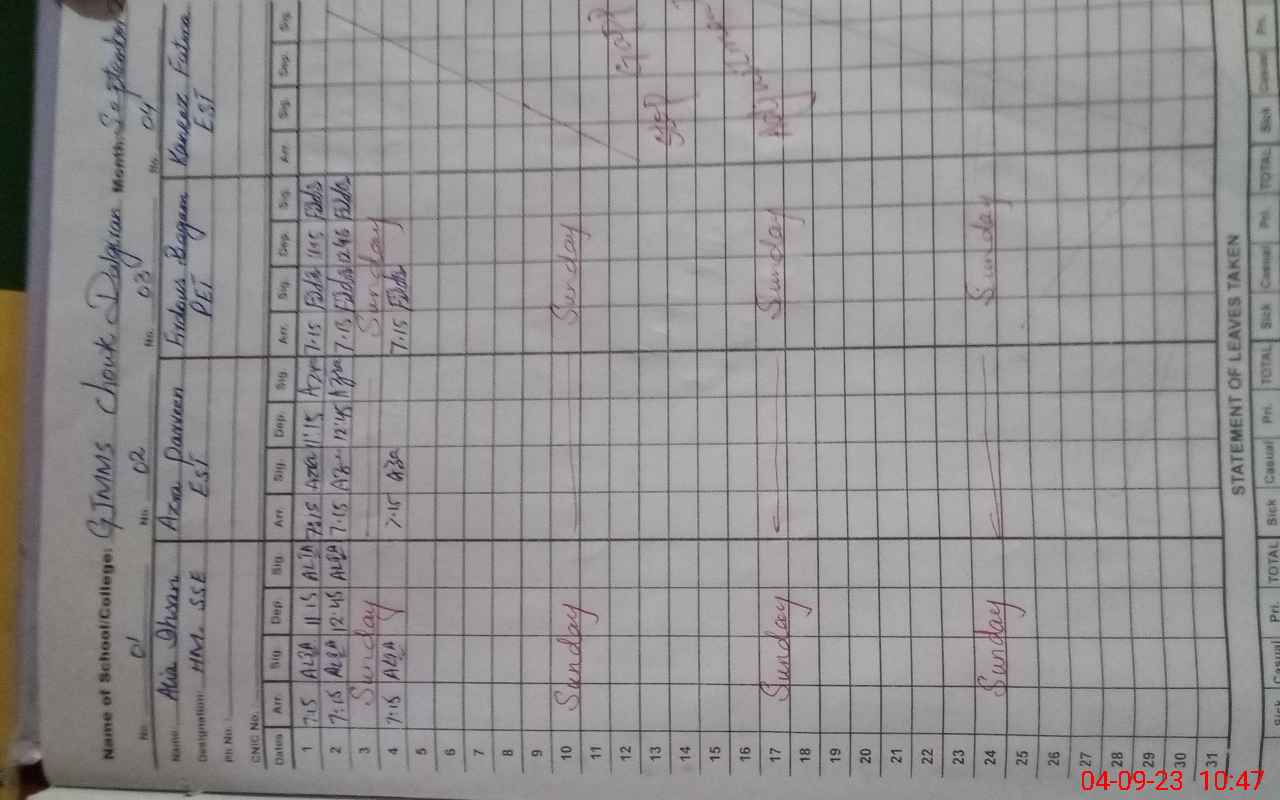 Name of School/College: GTMMS Chowk Dalgran Month: September
No. 01 No. 02 No. 03 No. 04
Name: Alia Ihsan Azra Parveen Firdous Begam Kaneez Fatima
Designation: HM. SSE EST PET EST
Ph No :
CNIC No.
Dates Arr. Sig. Dep. Sig. Arr. Sig. Dep. Sig. Arr. Sig. Dep. Sig. Arr. Sig. Dep. Sig.
1 7:15 ALIA 11:15 ALIA 7:15 Azra 11:15 Azra 7:15 11:15
2 7:15 ALIA 12:45 ALIA 7:15 Azra 12:45 Azra 7:15 12:45
3 Sunday Sunday
4 7:15 ALIA 7:15 Azra 7:15
5
6
7
8
9
10 Sunday Sunday
11
12
13
14
15
16
17 Sunday Sunday
18
19
20
21
22
23
24 Sunday Sunday
25
26
27
28
29
30
31
STATEMENT OF LEAVES TAKEN
Sick Casual Pri. TOTAL Sick Casual Pri. TOTAL Sick Casual Pri. TOTAL Sick Casual Pri.
04-09-23 10:47